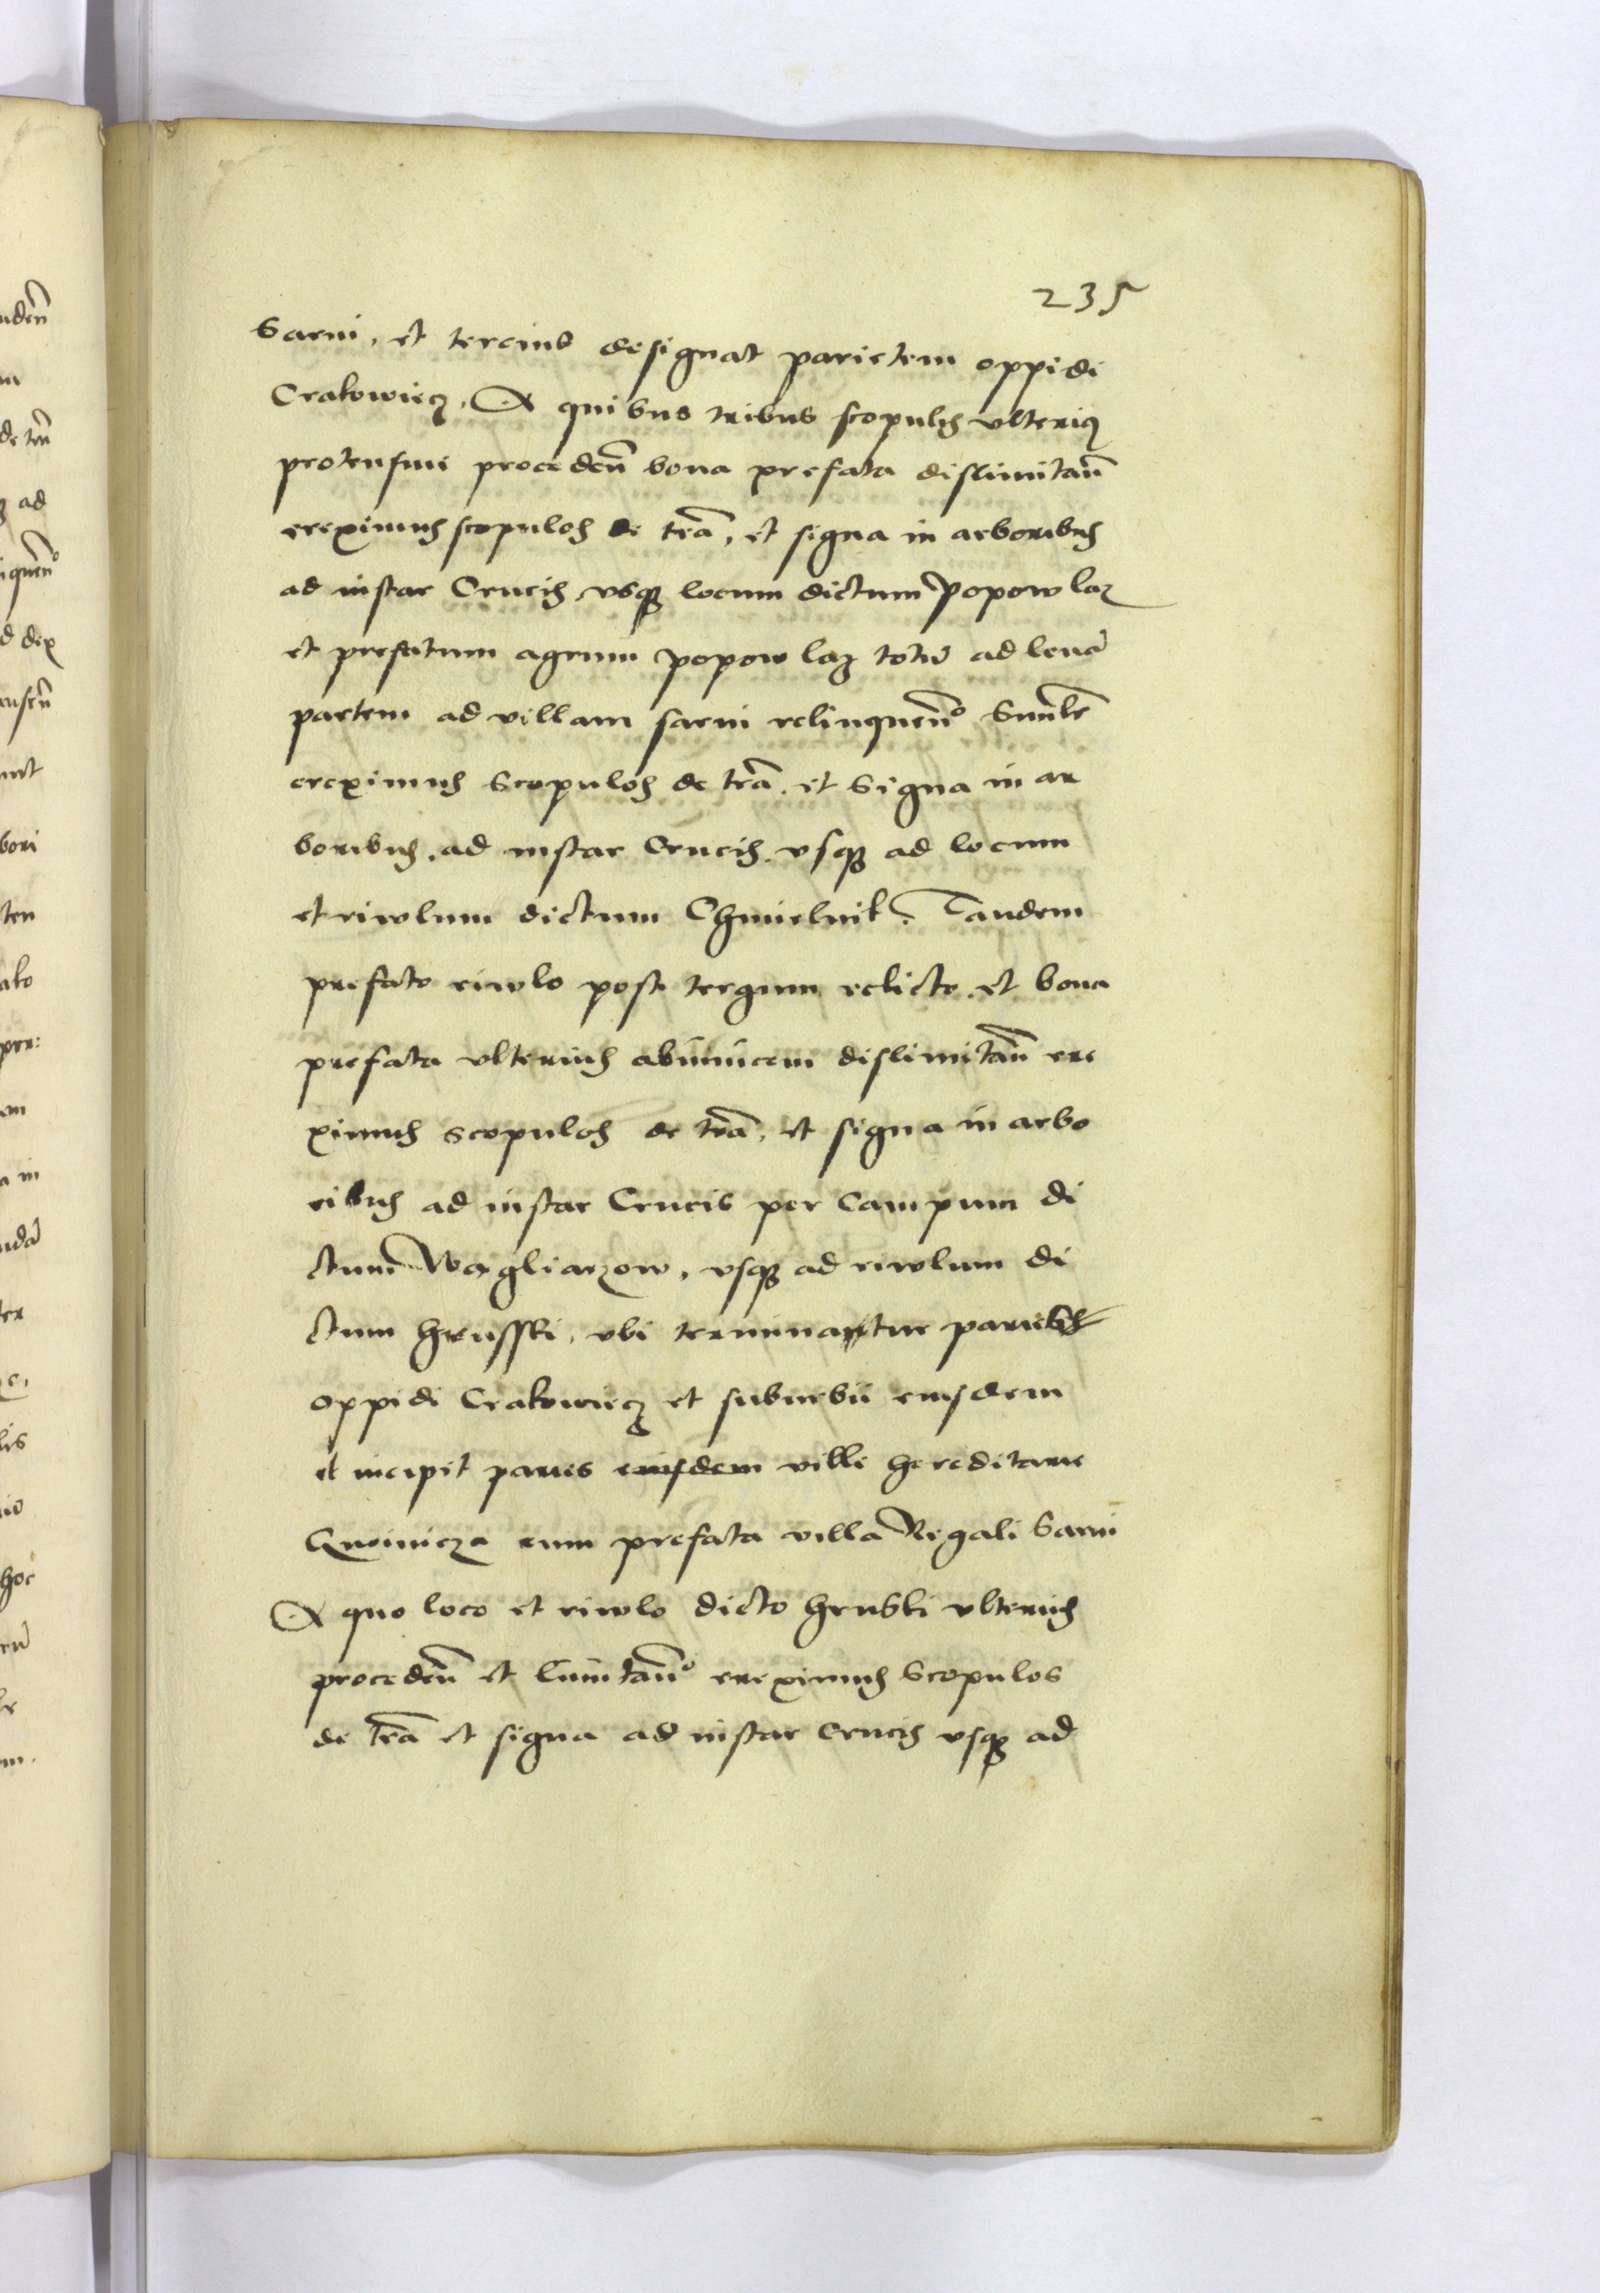 235
Sarni, et tercius designat parietem oppidi
Crakowiecz, A quibus tribus scopulis vlteriꝯ
protensiui proceden̄ bona prefata dislimitan̄
ereximus scopulos de tr̄a, et signa in arboribus
ad instar Crucis, vsqꝫ locum dictum Popow laz
et prefatum agrum popow laz totū ad leuā
partem ad villam sarni relinquen̄º
ereximus Scopulos de tr̄a, et Signa in ar
boribus, ad instar Crucis, vsqꝫ ad locum
et riwlum dictum Chmielnik. Tandem
prefato riwlo post tergum relicto, et bona
prefata vlterius abinuicem dislimitan̄ ere
ximus scopulos de tr̄a, et signa in arbo
ribus ad instar Crucis per Campum di
ctum Wągliarzow, vsqꝫ ad riwlum di
ctum hrusski, vbi terminantur
oppidi Crakowiecz et suburbii eiusdem
et incipit paries eiusdem ville hereditarie
Gnoinicza cum prefata villa Regali Sarni
A quo loco et riwlo dicto hruski vlterius
proceden̄ et limitan̄º ereximus Scopulos
de tr̄a et signa ad instar crucis vsqꝫ ad